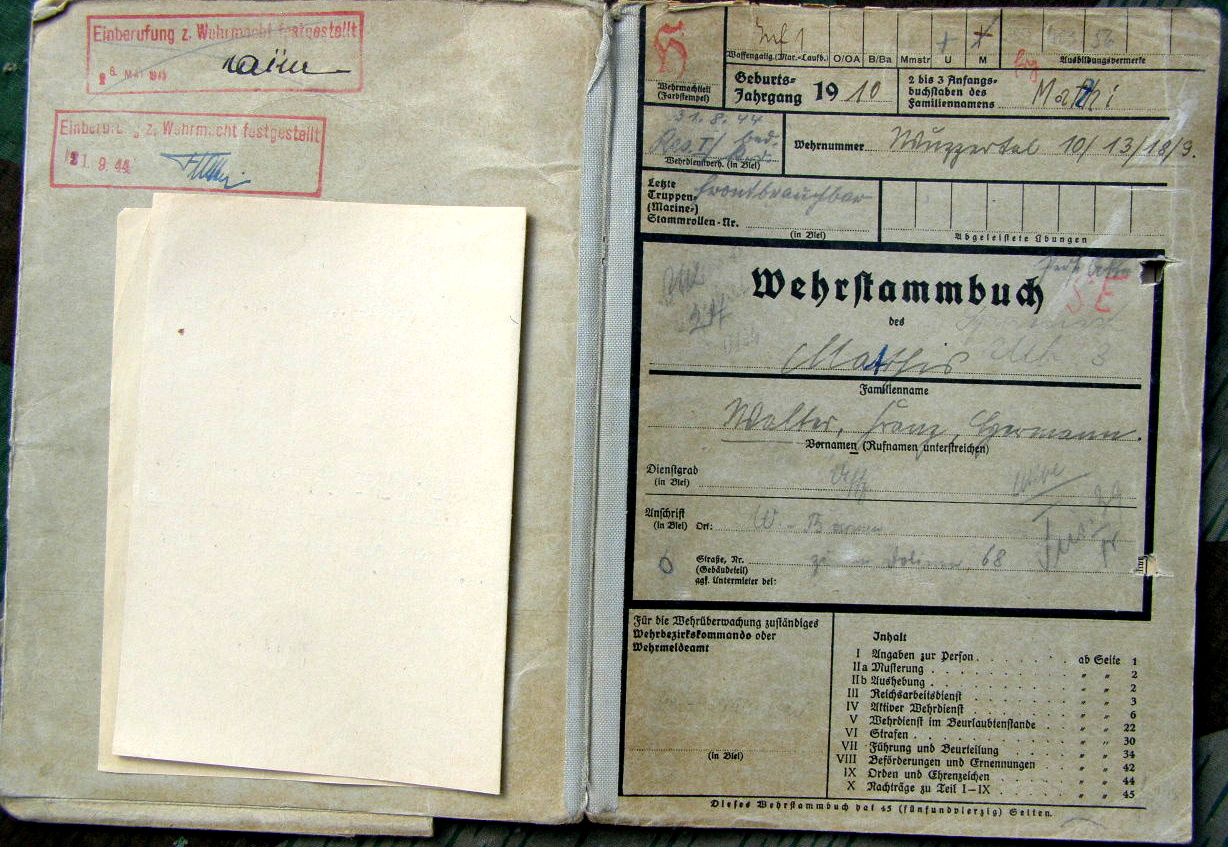 Einberufung z. Wehrmacht festgestellt
Einberufung z. Wehrmacht festgestellt
21. 9. 44
H
Inf 1
Waffengattg. (Mar.-Laufb.) O/OA B/Ba Mmstr U M Ausbildungsvermerke
Wehrmachtteil
(Farbstempel)
Geburts-
Jahrgang 1910
2 bis 3 Anfangs-
buchstaben des
Familiennamens
31.8.44
Res. I
Wehrdienstverh. (in Blei)
Wehrnummer Wuppertal 10/13/18/9.
Letzte
Truppen-
(Marine-)
Stammrollen-Nr.
frontbrauchbar
(in Blei)
Abgeleistete Übungen
Wehrstammbuch
S.E
des
Matthis
Familienname
Walter, Franz, Hermann.
Vornamen (Rufnamen unterstreichen)
Dienstgrad
(in Blei)
Uffz
Anschrift
(in Blei) Ort: W.-Barmen
Straße, Nr.
(Gebäudeteil)
ggf. Untermieter bei:
68
Für die Wehrüberwachung zuständiges
Wehrbezirkskommando oder
Wehrmeldeamt
(in Blei)
Inhalt
I Angaben zur Person . . . ab Seite 1
IIa Musterung . . . „ „ 2
IIb Aushebung . . . „ „ 2
III Reichsarbeitsdienst . . . „ „ 3
IV Aktiver Wehrdienst . . . „ „ 6
V Wehrdienst im Beurlaubtenstande . . . „ „ 22
VI Strafen . . . „ „ 30
VII Führung und Beurteilung . . . „ „ 34
VIII Beförderungen und Ernennungen . . . „ „ 42
IX Orden und Ehrenzeichen . . . „ „ 44
X Nachträge zu Teil I–IX . . . „ „ 45
Dieses Wehrstammbuch hat 45 (fünfundvierzig) Seiten.